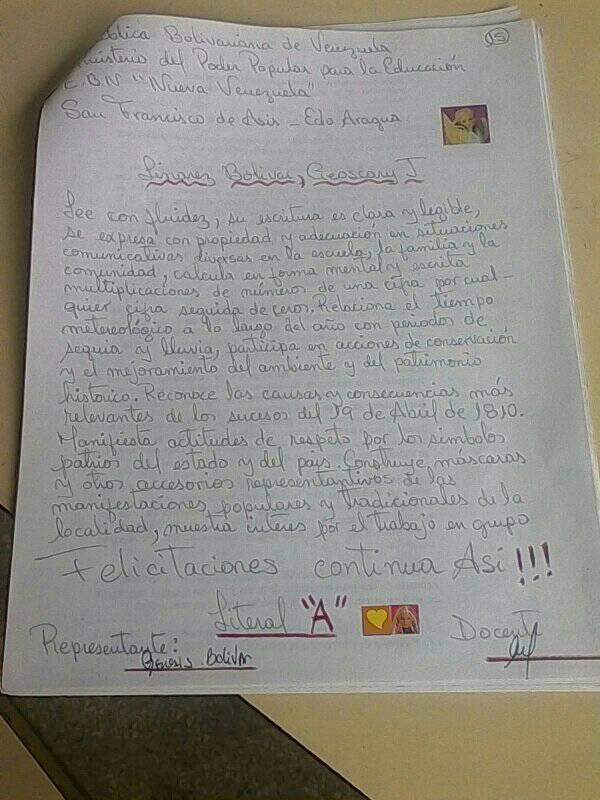 ública Bolivariana de Venezuela
nisterio del Poder Popular para la Educación
E.B.N "Nueva Venezuela"
San Francisco de Asis - Edo Aragua.
15
Linarez Bolivar, Geoscary J
Lee con fluidez, su escritura es clara y legible,
se expresa con propiedad y adecuación en situaciones
comunicativas diversas en la escuela, la familia y la
comunidad, calcula en forma mental y escrita
multiplicaciones de números de una cifra por cual-
quier cifra seguida de ceros. Relaciona el tiempo
metereológico a lo largo del año con periodos de
sequia y lluvia, participa en acciones de conservación
y el mejoramiento del ambiente y del patrimonio
historico. Reconoce las causas y consecuencias más
relevantes de los sucesos del 19 de Abril de 1810.
Manifiesta actitudes de respeto por los simbolos
patrios del estado y del pais. Construye máscaras
y otros accesorios representantivos de las
manifestaciones populares y tradicionales de la
localidad, muestra interes por el trabajo en grupo
Felicitaciones continua Asi !!!
Literal "A"
Representante:
Genesis Bolivar
Docente